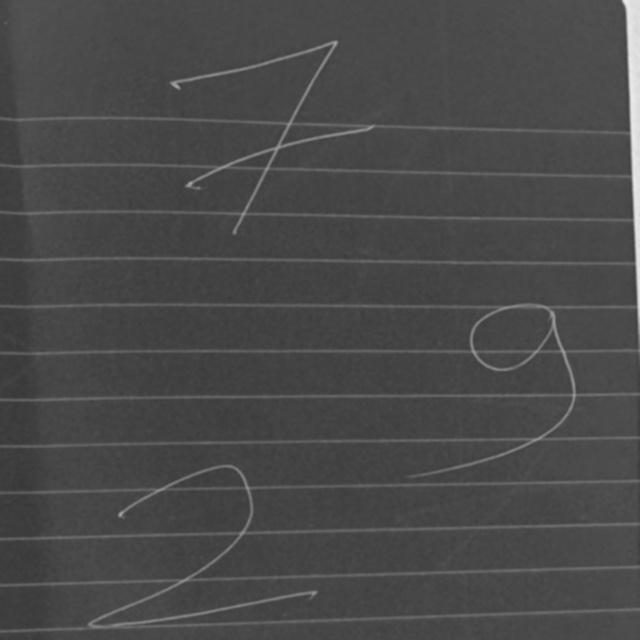 7
9
2